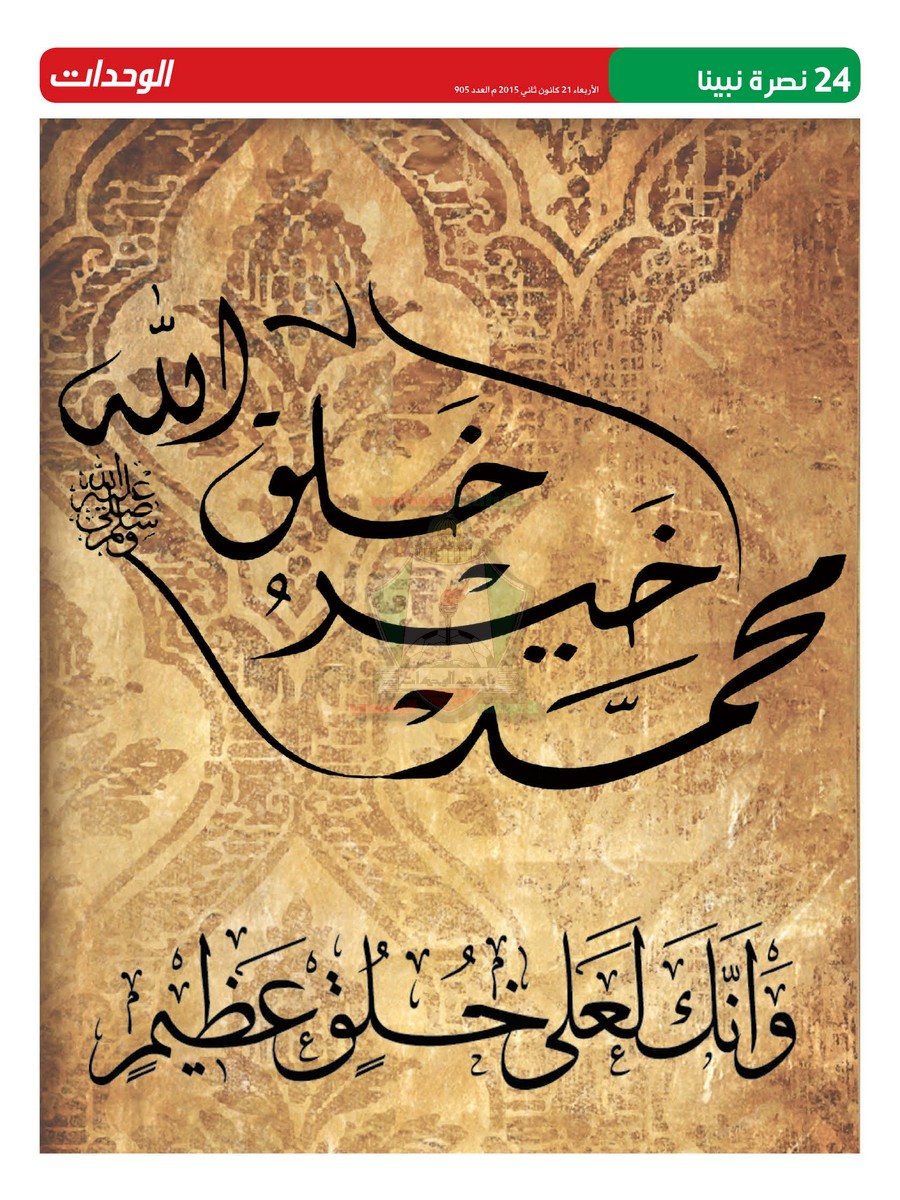 24 نصرة نبينا
الأربعاء 21 كانون ثاني 2015 م العدد 905
الوحدات
محمد خير خلق الله
صلى الله عليه وسلم
وَإِنَّكَ لَعَلَى خُلُقٍ عَظِيمٍ